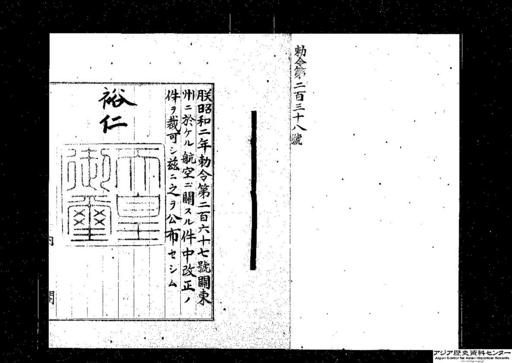 勅令第二百三十八號
朕昭和二年勅令第二百六十七號關東
州ニ於ケル航空ニ關スル件中改正ノ
件ヲ裁可シ茲ニ之ヲ公布セシム
裕仁
天皇
御璽
内閣
アジア歴史資料センター
Japan Center for Asian Historical Records